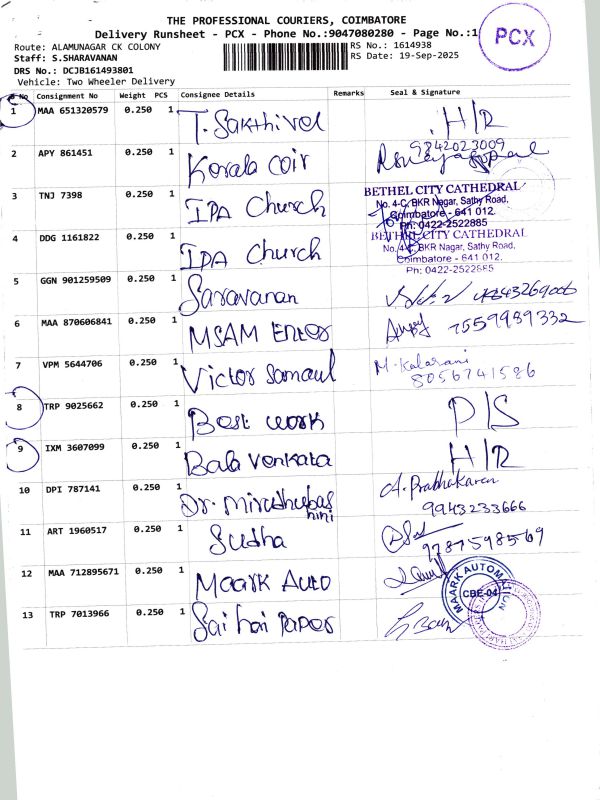 THE PROFESSIONAL COURIERS, COIMBATORE
Delivery Runsheet - PCX - Phone No.:9047080280 - Page No.:1
PCX
Route: ALAMUNAGAR CK COLONY
RS No.: 1614938
Staff: S.SHARAVANAN
RS Date: 19-Sep-2025
DRS No.: DCJB161493801
Vehicle: Two Wheeler Delivery
No Consignment No Weight PCS Consignee Details Remarks Seal & Signature
1 MAA 651320579 0.250 1 T. Sakthivel H/R
2 APY 861451 0.250 1 Kerala Coir 9842023009
3 TNJ 7398 0.250 1 IPA Church
BETHEL CITY CATHEDRAL
No. 4-C, BKR Nagar, Sathy Road,
Coimbatore - 641 012.
Ph: 0422-2522885
4 DDG 1161822 0.250 1 IPA Church
BETHEL CITY CATHEDRAL
No. 4-C, BKR Nagar, Sathy Road,
Coimbatore - 641 012.
Ph: 0422-2522885
5 GGN 901259509 0.250 1 Saravanan
6 MAA 870606841 0.250 1 MSAM Enter 7559939332
7 VPM 5644706 0.250 1 Victor Samaul M. Kalarani
8056741586
8 TRP 9025662 0.250 1 Best work D/S
9 IXM 3607099 0.250 1 Bala Venkata H/R
10 DPI 787141 0.250 1 Dr. Mirudhubashini A. Prabhakaran
9943233666
11 ART 1960517 0.250 1 Sudha
9787598569
12 MAA 712895671 0.250 1 Maark Auto
MAARK AUTOMATION
CBE-04
13 TRP 7013966 0.250 1 Sai hari Paper